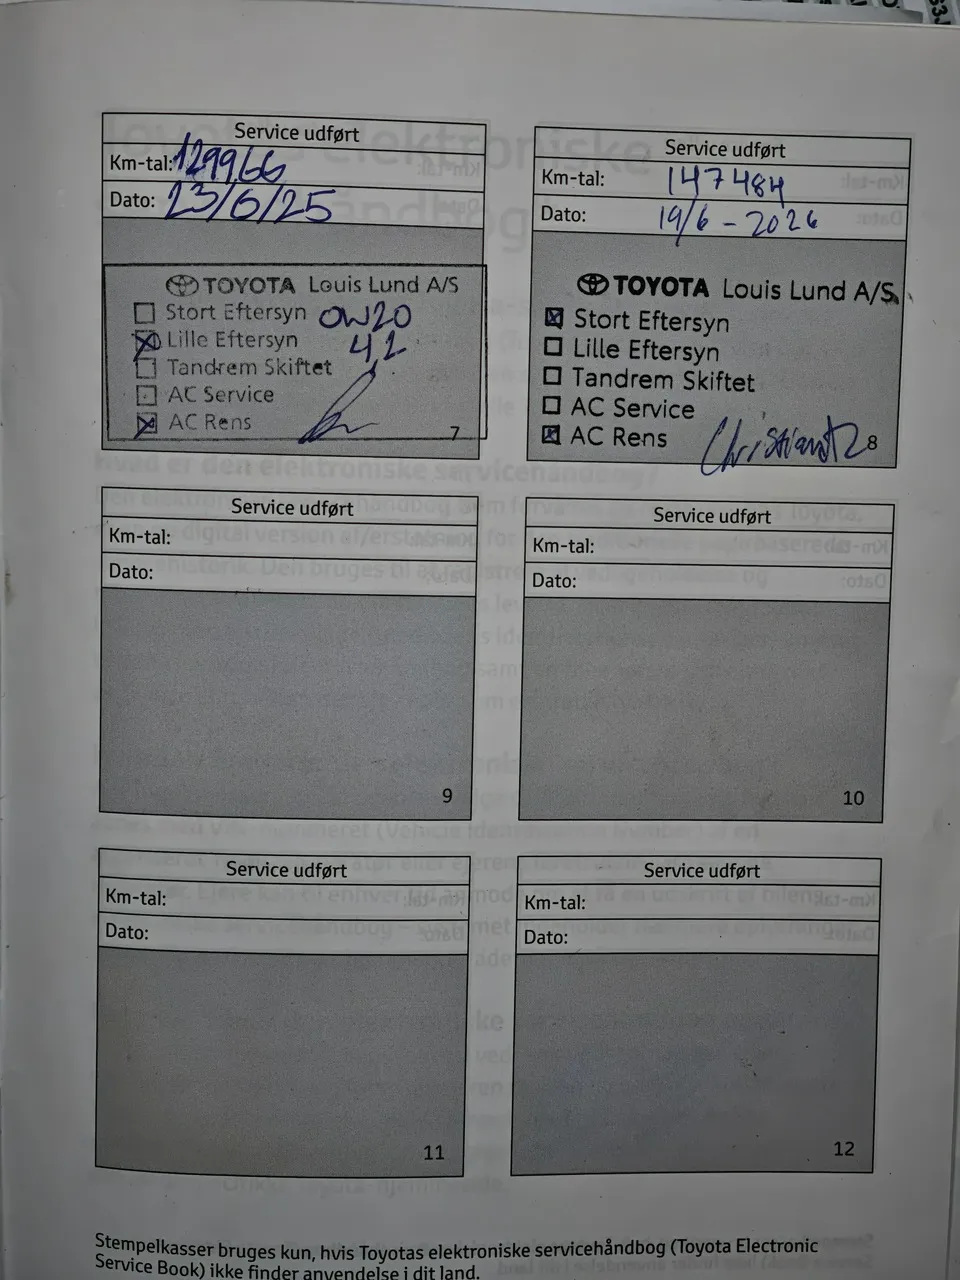 Service udført
Km-tal: 129966
Dato: 23/6/25
TOYOTA Louis Lund A/S
Stort Eftersyn OW20
Lille Eftersyn 4,2
Tandrem Skiftet
AC Service
AC Rens
7
Service udført
Km-tal: 147484
Dato: 19/6-2026
TOYOTA Louis Lund A/S
Stort Eftersyn
Lille Eftersyn
Tandrem Skiftet
AC Service
AC Rens
8
Service udført
Km-tal:
Dato:
9
Service udført
Km-tal:
Dato:
10
Service udført
Km-tal:
Dato:
11
Service udført
Km-tal:
Dato:
12
Stempelkasser bruges kun, hvis Toyotas elektroniske servicehåndbog (Toyota Electronic
Service Book) ikke finder anvendelse i dit land.